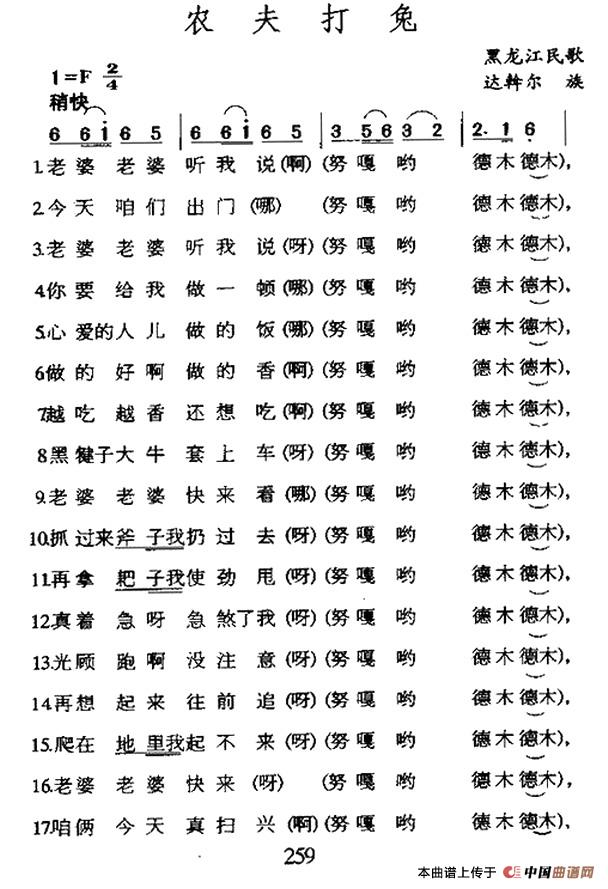 农夫打兔
黑龙江民歌
1=F 2/4
达斡尔 族
稍快
6 6i 6 5 | 6 6i 6 5 | 3 56 3 2 | 2. 1 6
1.老婆 老婆 听我 说(啊)(努嘎哟 德木德木),
2.今天 咱们 出门(哪) (努嘎哟 德木德木),
3.老婆 老婆 听我 说(呀)(努嘎哟 德木德木),
4.你要 给我 做一 顿(哪)(努嘎哟 德木德木),
5.心爱的人儿 做的 饭(哪)(努嘎哟 德木德木),
6.做的 好啊 做的 香(啊)(努嘎哟 德木德木),
7.越吃 越香 还想 吃(啊)(努嘎哟 德木德木),
8.黑犍子大牛 套上 车(呀)(努嘎哟 德木德木),
9.老婆 老婆 快来 看(哪)(努嘎哟 德木德木),
10.抓过来斧子我扔过 去(呀)(努嘎哟 德木德木),
11.再拿 耙子我使劲 甩(呀)(努嘎哟 德木德木),
12.真着 急呀 急煞了我(呀)(努嘎哟 德木德木),
13.光顾 跑啊 没注 意(呀)(努嘎哟 德木德木),
14.再想 起来 往前 追(呀)(努嘎哟 德木德木),
15.爬在 地里我起不 来(呀)(努嘎哟 德木德木),
16.老婆 老婆 快来(呀) (努嘎哟 德木德木),
17.咱俩 今天 真扫 兴(啊)(努嘎哟 德木德木),
259
本曲谱上传于 中国曲谱网